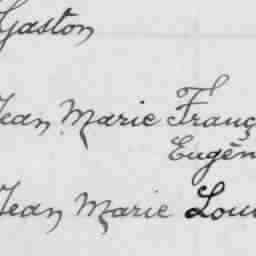 Gaston
Jean Marie Franç
Eugèn
Jean Marie Loui